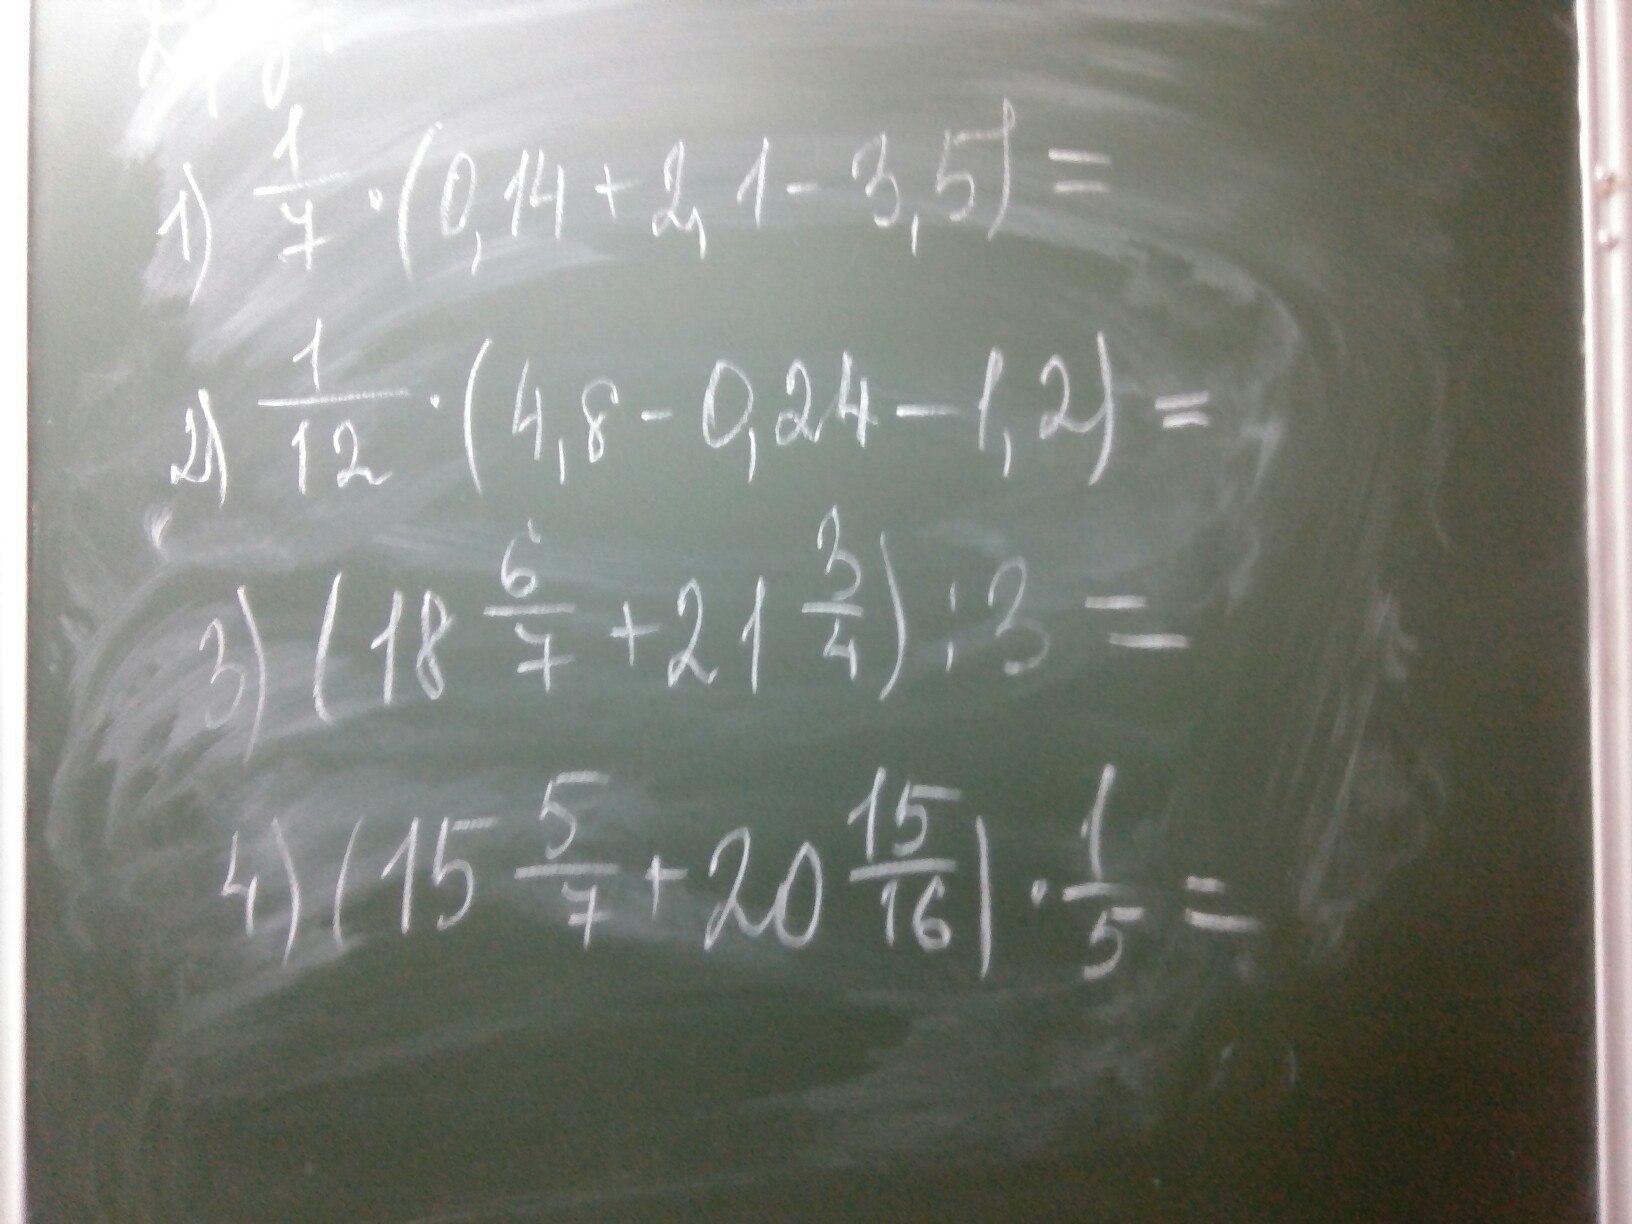 1) 1/7 · (0,14 + 2,1 - 3,5) =
2) 1/12 · (4,8 - 0,24 - 1,2) =
3) (18 6/7 + 21 3/4) : 3 =
4) (15 5/7 + 20 15/16) · 1/5 =